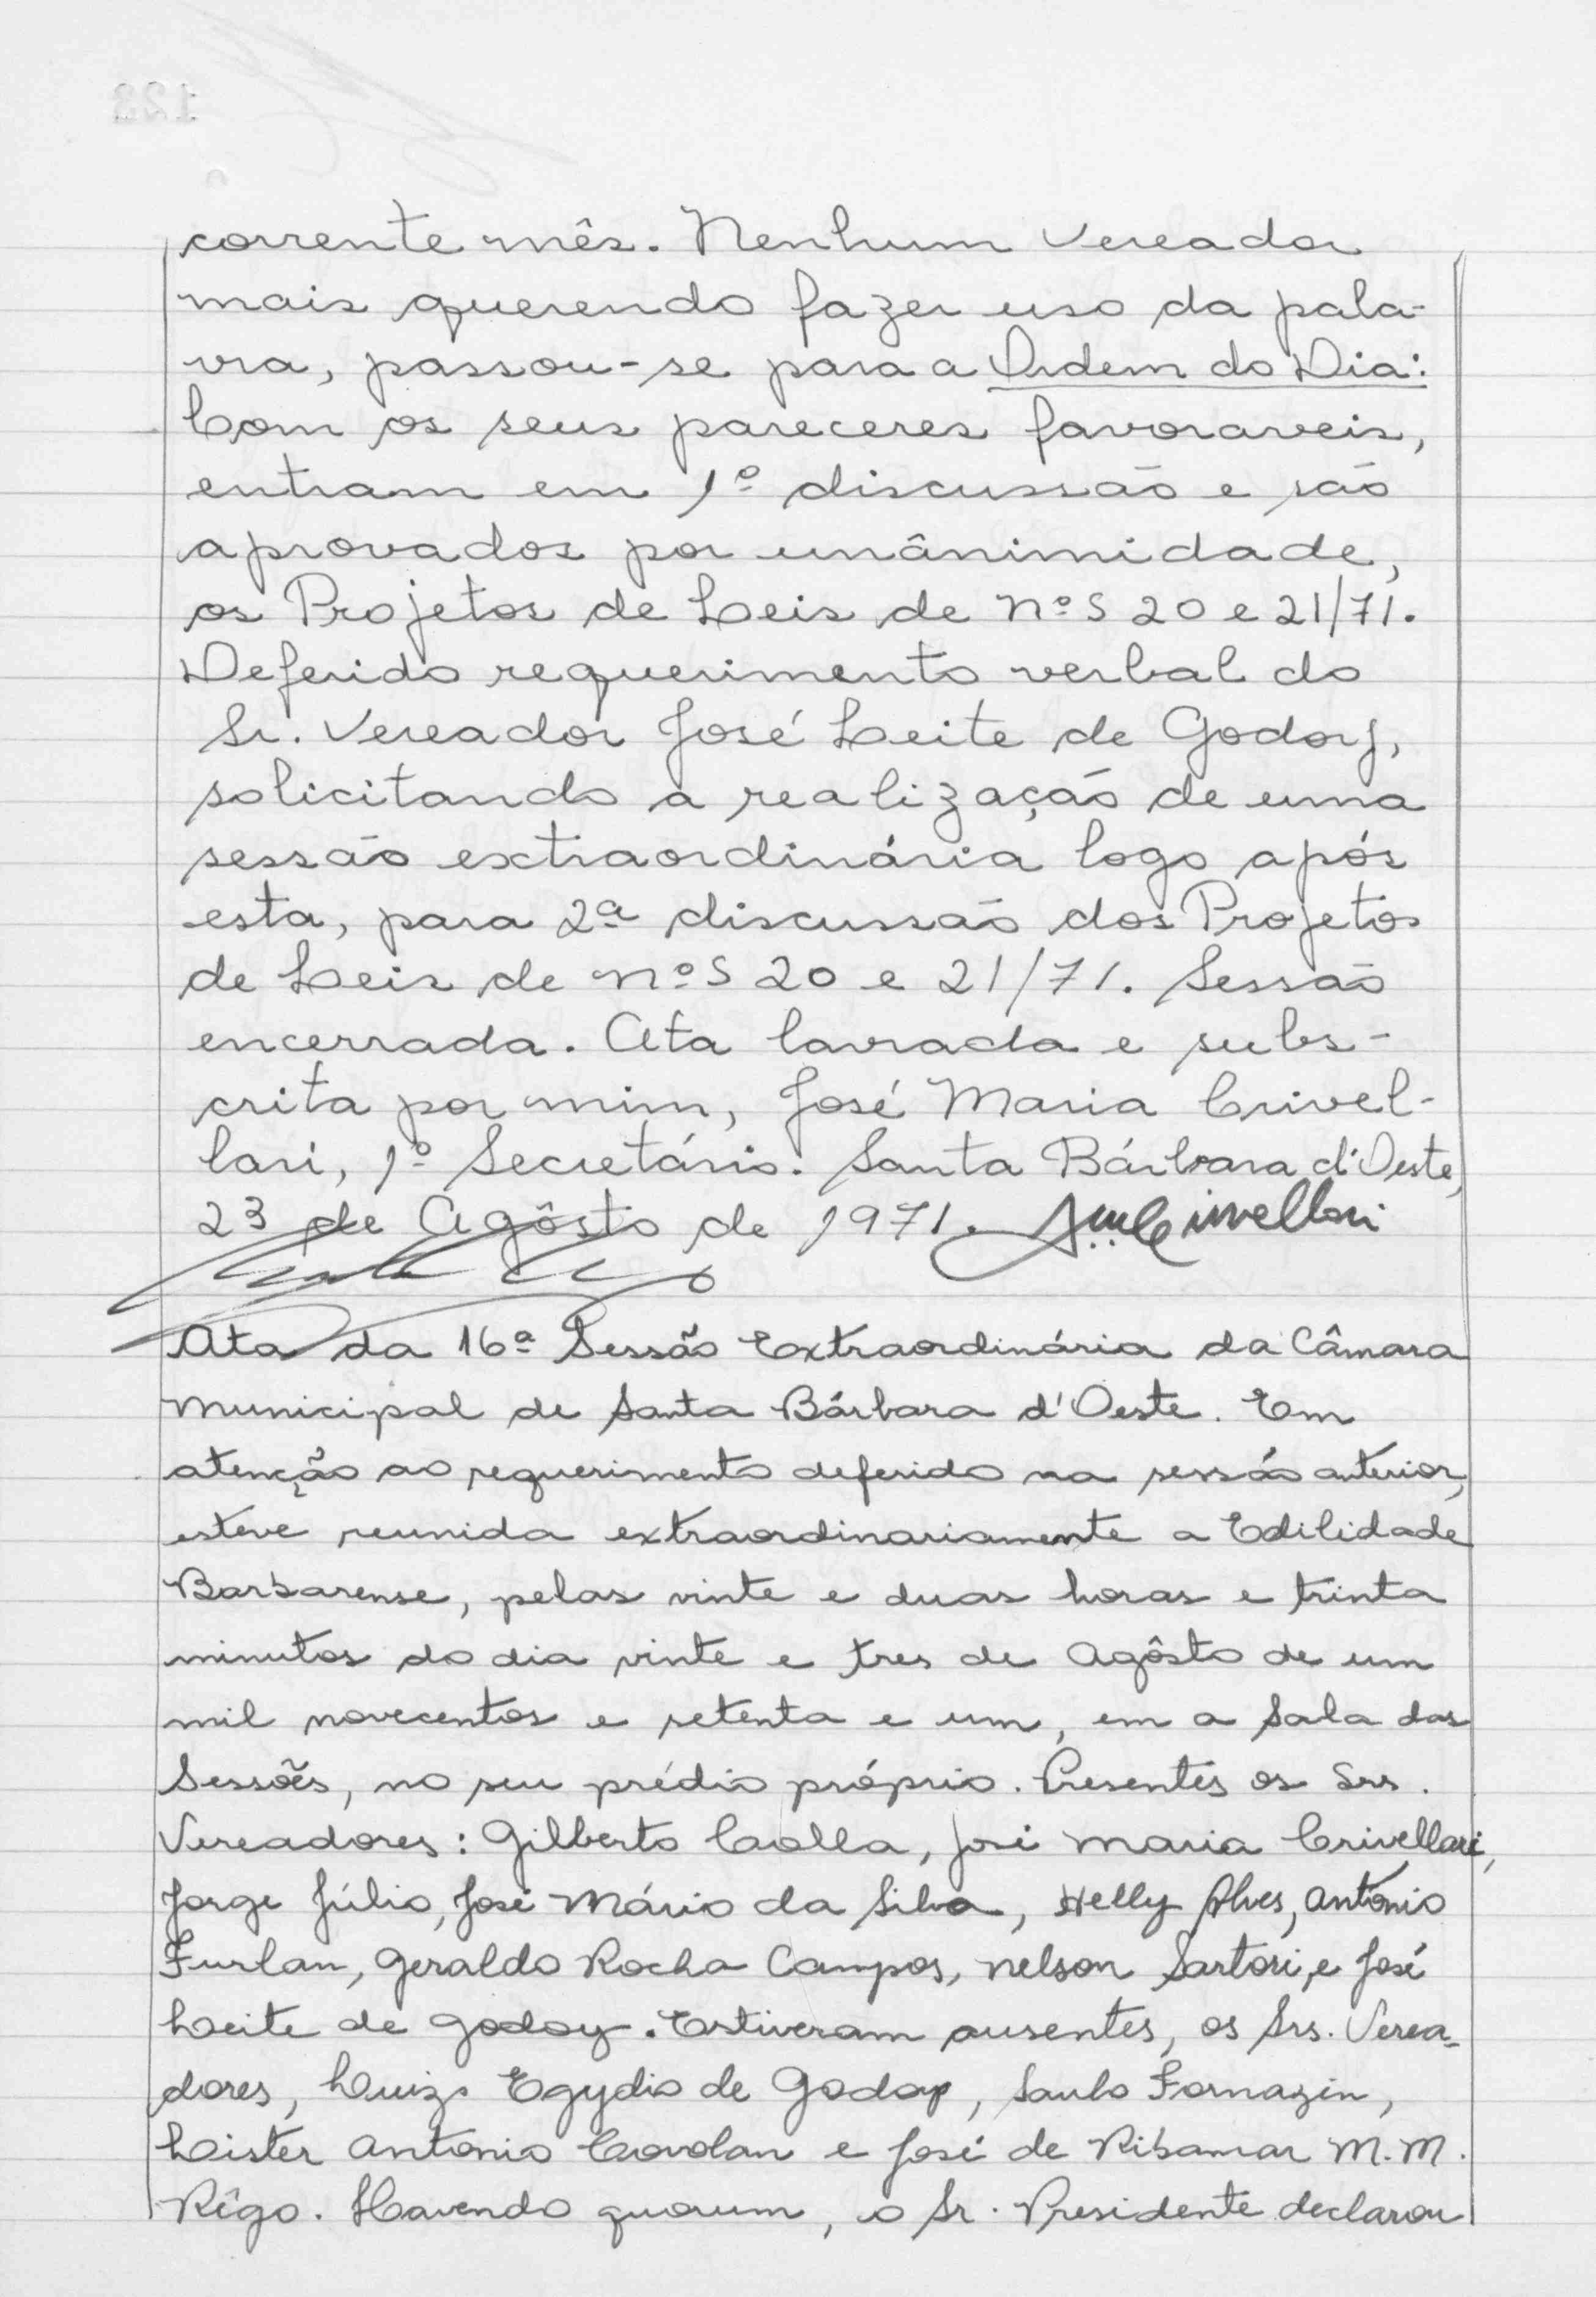 corrente mês. Nenhum Vereador
mais querendo fazer uso da pala-
vra, passou-se para a Ordem do Dia:
Com os seus pareceres favoraveis,
entram em 1º discussão e são
aprovados por unânimidade,
os Projetos de Leis de Nºs 20 e 21/71.
Deferido requerimento verbal do
Sr. Vereador José Leite de Godoy,
solicitando a realização de uma
sessão extraordinária logo após
esta, para 2ª discussão dos Projetos
de Leis de nºs 20 e 21/71. Sessão
encerrada. Ata lavrada e subs-
crita por mim, José Maria Crivel-
lari, 1º Secretário. Santa Bárbara d'Oeste,
23 de Agôsto de 1971.
Ata da 16ª Sessão Extraordinária da Câmara
Municipal de Santa Bárbara d'Oeste. Em
atenção ao requerimento deferido na sessão anterior,
esteve reunida extraordinariamente a Edilidade
Barbarense, pelas vinte e duas horas e trinta
minutos do dia vinte e tres de Agôsto de um
mil novecentos e setenta e um, em a Sala das
Sessões, no seu prédio próprio. Presentes os Srs.
Vereadores: Gilberto Colla, José Maria Crivellari,
Jorge Júlio, José Mário da Silva, Helly Alves, Antonio
Furlan, Geraldo Rocha Campos, Nelson Sartori, e José
Leite de Godoy. Estiveram ausentes, os Srs. Verea-
dores, Luiz Egydio de Godoy, Saulo Fornazin,
Lister Antonio Covolan e José de Ribamar M. M.
Rêgo. Havendo quorum, o Sr. Presidente declarou